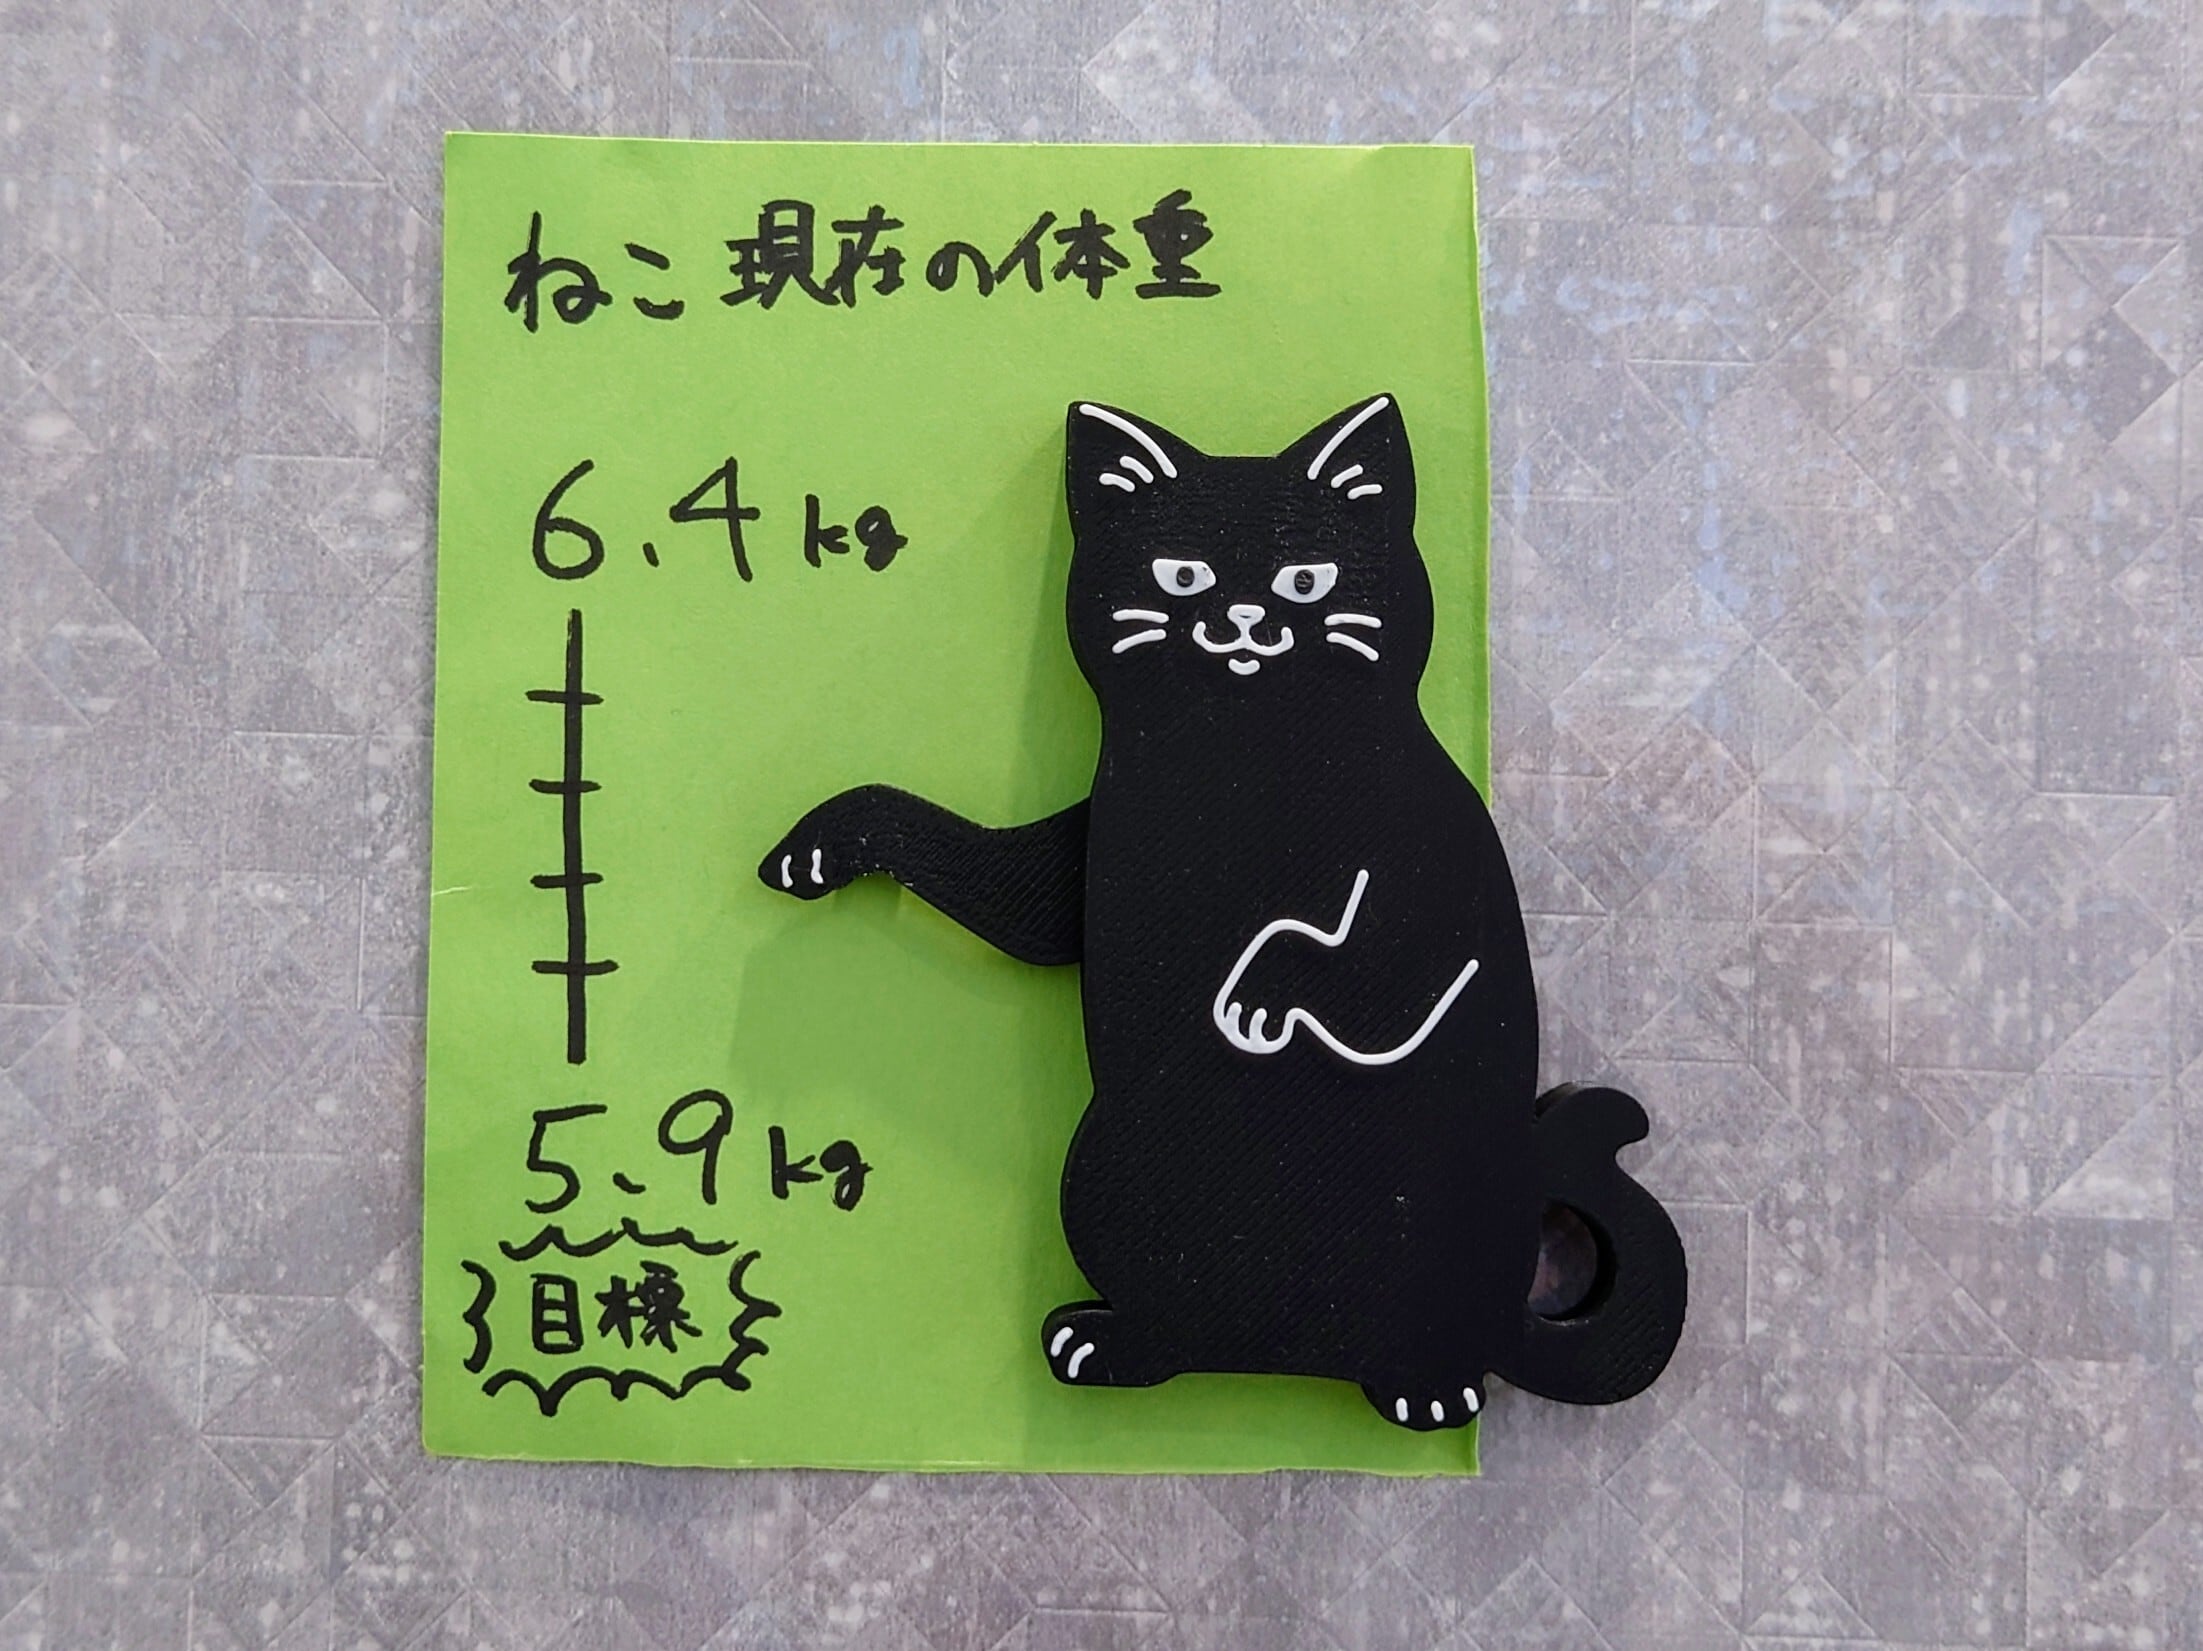 ねこ現在の体重
6.4kg
5.9kg
目標